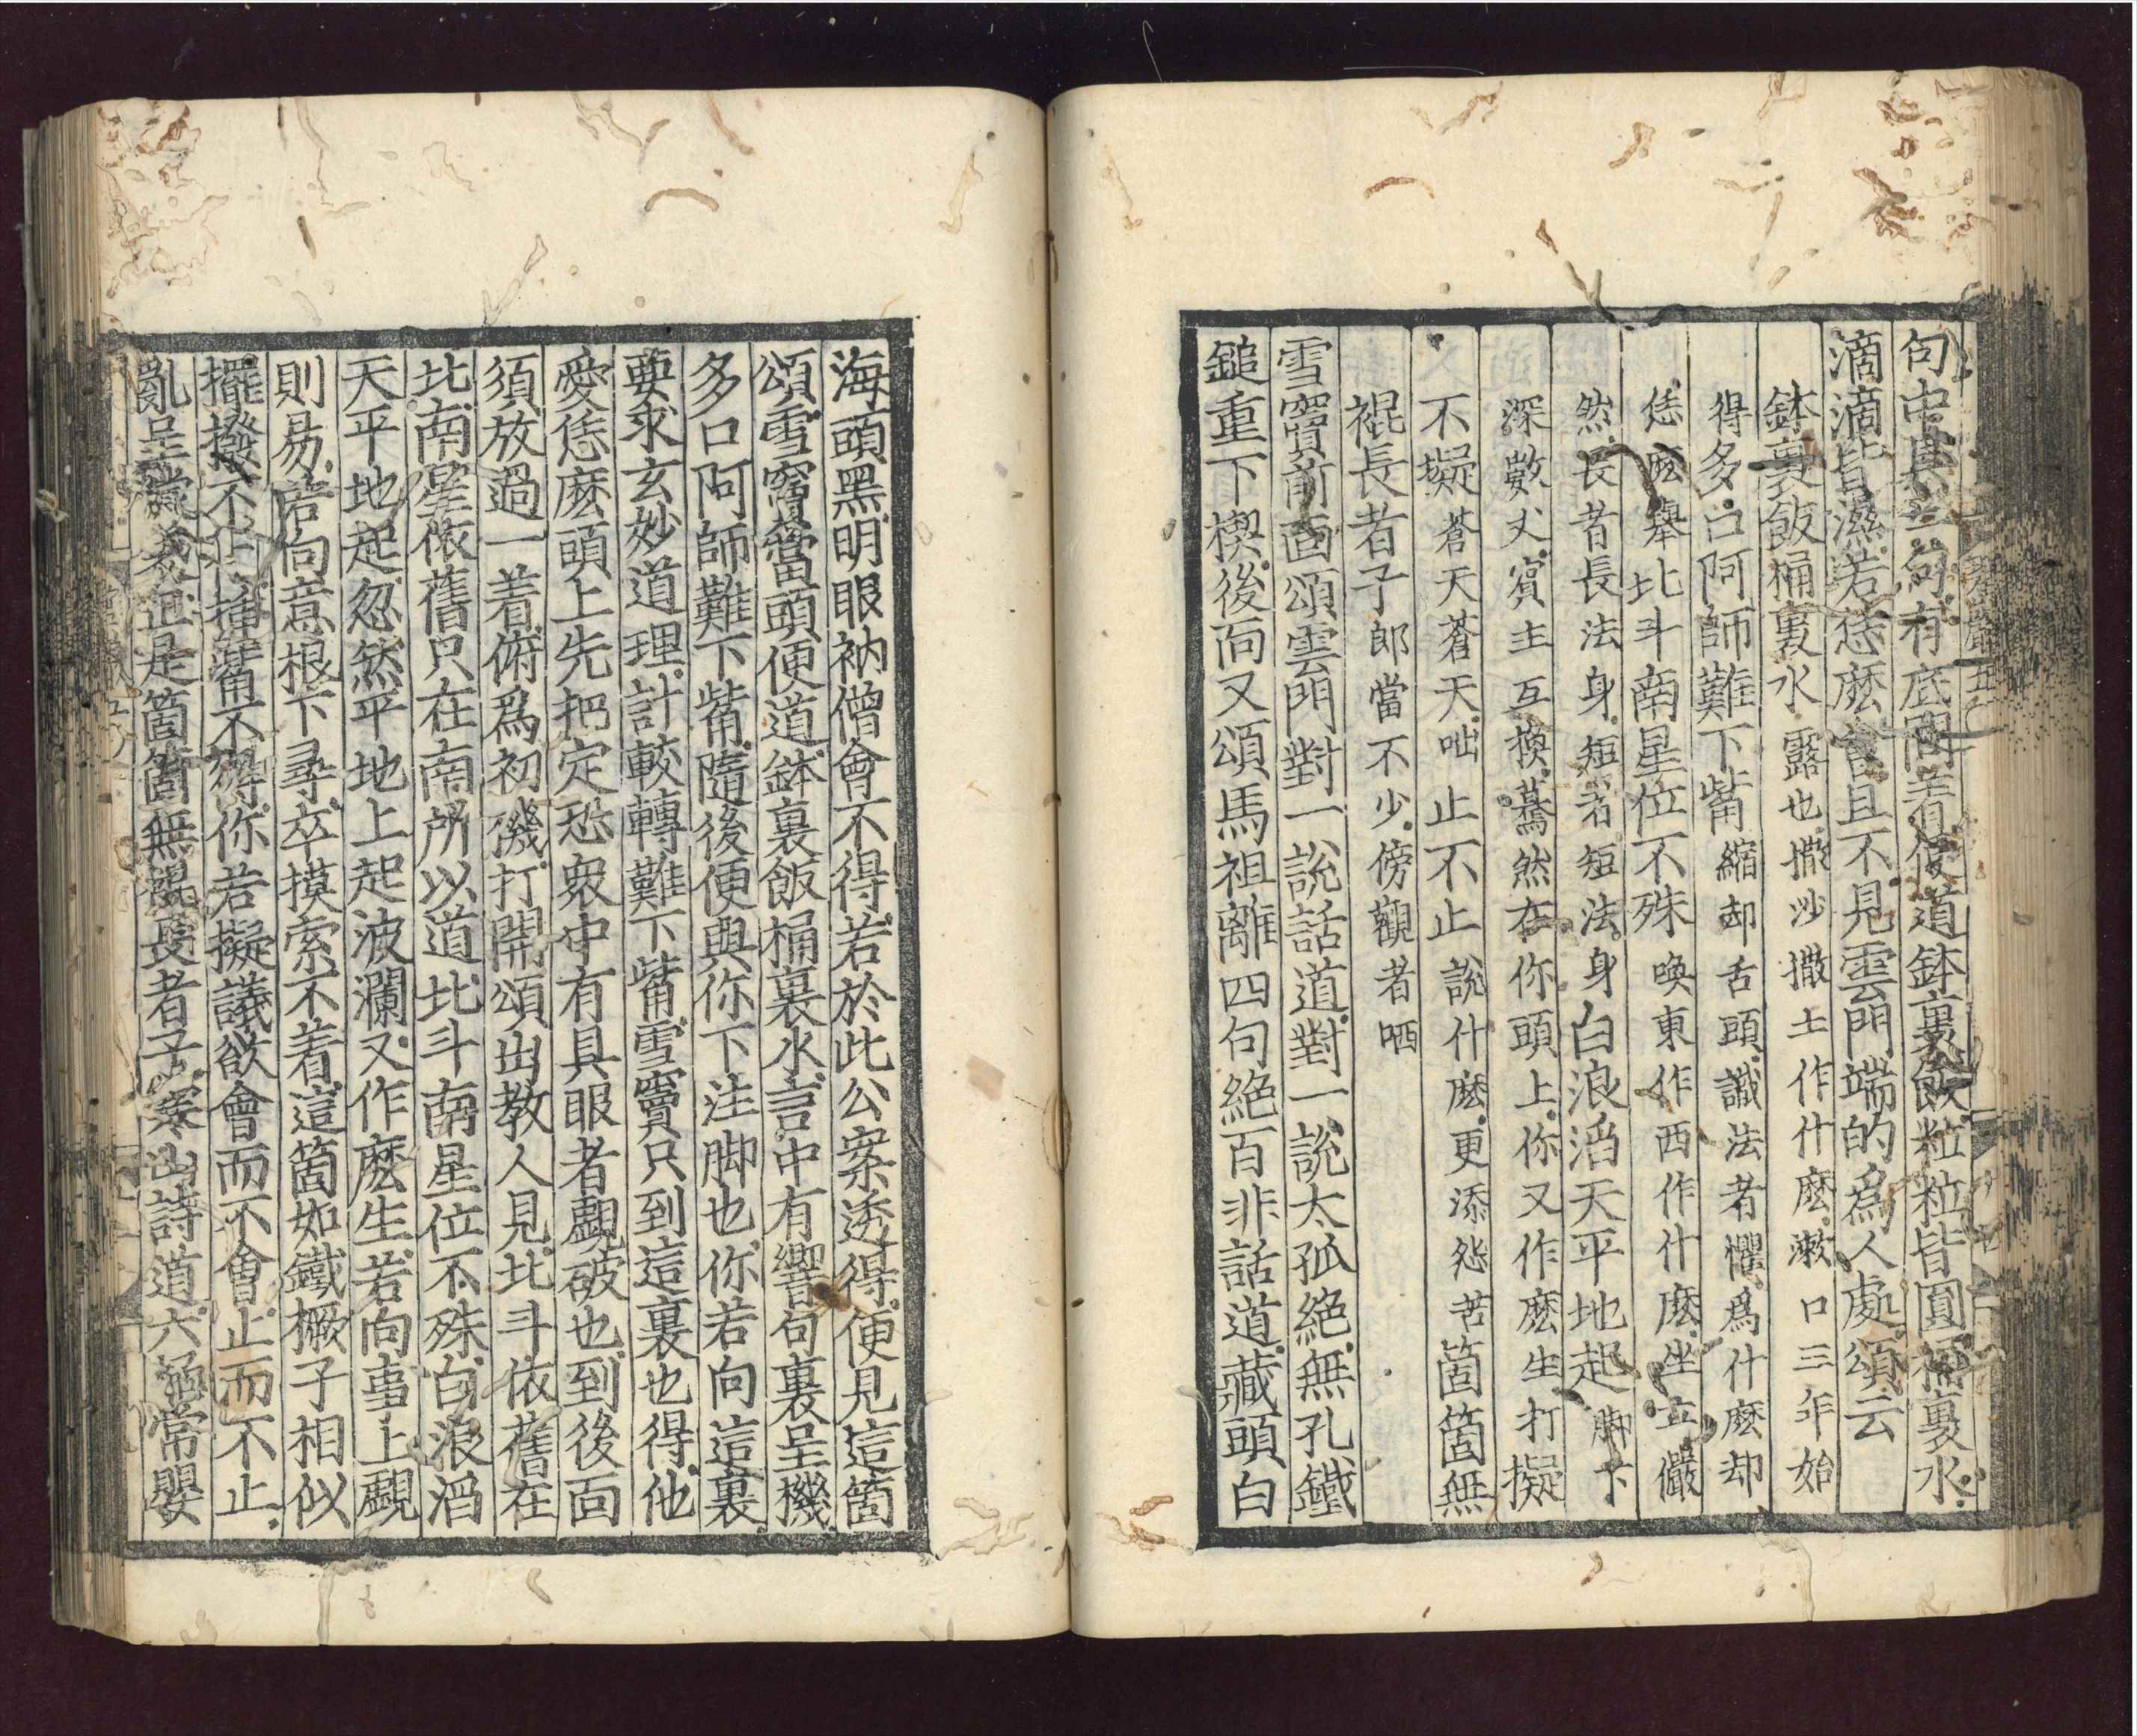 句中具三句有底問着便道鉢裏飯粒粒皆圓桶裏水
滴滴皆濕若恁麽會且不見雲門端的為人處頌云
鉢裏飯桶裏水露也撒沙撒土作什麽漱口三年始
得多口阿師難下觜縮却舌頭識法者懼爲什麽却
恁麽舉北斗南星位不殊喚東作西作什麽坐立儼
然長者長法身短者短法身白浪滔天平地起脚下
深數丈賓主互換驀然在你頭上你又作麽生打擬
不擬蒼天蒼天咄止不止說什麽更添怨苦箇箇無
裩長者子郎當不少傍觀者哂
雪竇前面頌雲門對一說話道對一說太孤絶無孔鐵
鎚重下楔後面又頌馬祖離四句絶百非話道藏頭白
海頭黑明眼衲僧會不得若於此公案透得便見這箇
頌雪竇當頭便道鉢裏飯桶裏水言中有響句裏呈機
多口阿師難下觜隨後便與你下注脚也你若向這裏
要求玄妙道理計較轉難下觜雪竇只到這裏也得他
愛恁麽頭上先把定恐衆中有具眼者覷破也到後面
須放過一着俯爲初機打開頌出教人見北斗依舊在
北南星依舊只在南所以道北斗南星位不殊白浪滔
天平地起忽然平地上起波瀾又作麽生若向事上覷
則易若向意根下尋卒摸索不着這箇如鐵橛子相似
擺撥不得插觜不得你若擬議欲會而不會止而不止
亂呈懞袋正是箇箇無裩長者子寒山詩道六極常嬰